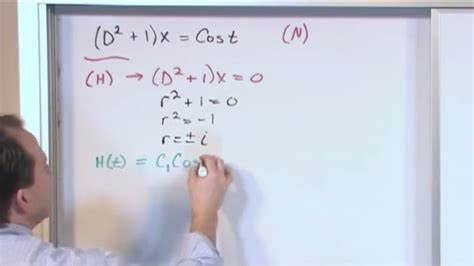 (D² + 1)x = Cos t (N)
(H) → (D² + 1)x = 0
r² + 1 = 0
r² = -1
r = ± i
H(t) = C₁ Cos